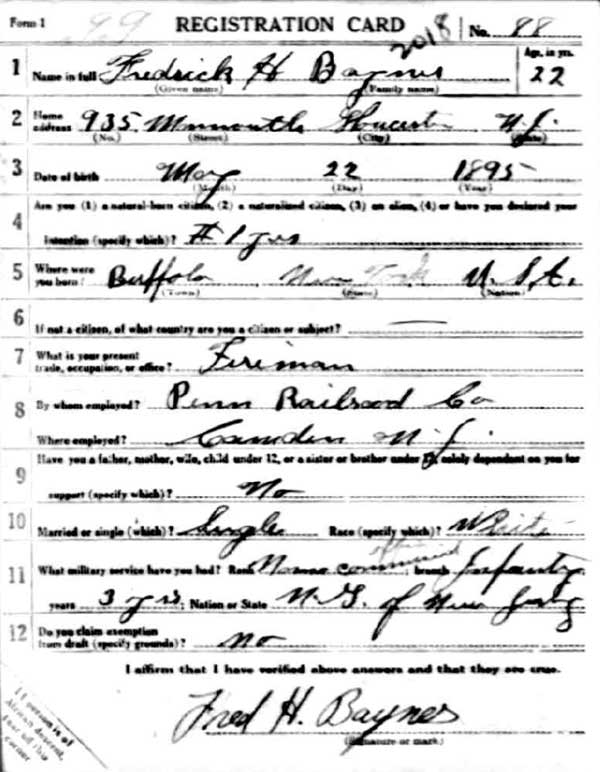 Form 1 REGISTRATION CARD No. 88
99 2018 Age, in yrs.
1 Name in full Fredrick H Baynes 22
(Given name) (Family name)
2 Home address 935 Monmouth Gloucester N.J.
(No.) (Street) (City) (State)
3 Date of birth May 22 1895
(Month) (Day) (Year)
4 Are you (1) a natural-born citizen, (2) a naturalized citizen, (3) an alien, (4) or have you declared your
intention (specify which)? # 1 yes
5 Where were you born? Buffalo New York U.S.A.
(Town) (State) (Nation)
6 If not a citizen, of what country are you a citizen or subject? —
7 What is your present trade, occupation, or office? Fireman
8 By whom employed? Penn Railroad Co
Where employed? Camden N.J.
9 Have you a father, mother, wife, child under 12, or a sister or brother under 12, solely dependent on you for
support (specify which)? No
10 Married or single (which)? Single Race (specify which)? White
11 What military service have you had? Rank None commissioned; branch Infantry
years 3 yrs; Nation or State N.G. of New Jersey
12 Do you claim exemption from draft (specify grounds)? No
I affirm that I have verified above answers and that they are true.
Fred H. Baynes
(Signature or mark)
If person is of
African descent,
tear off this
corner